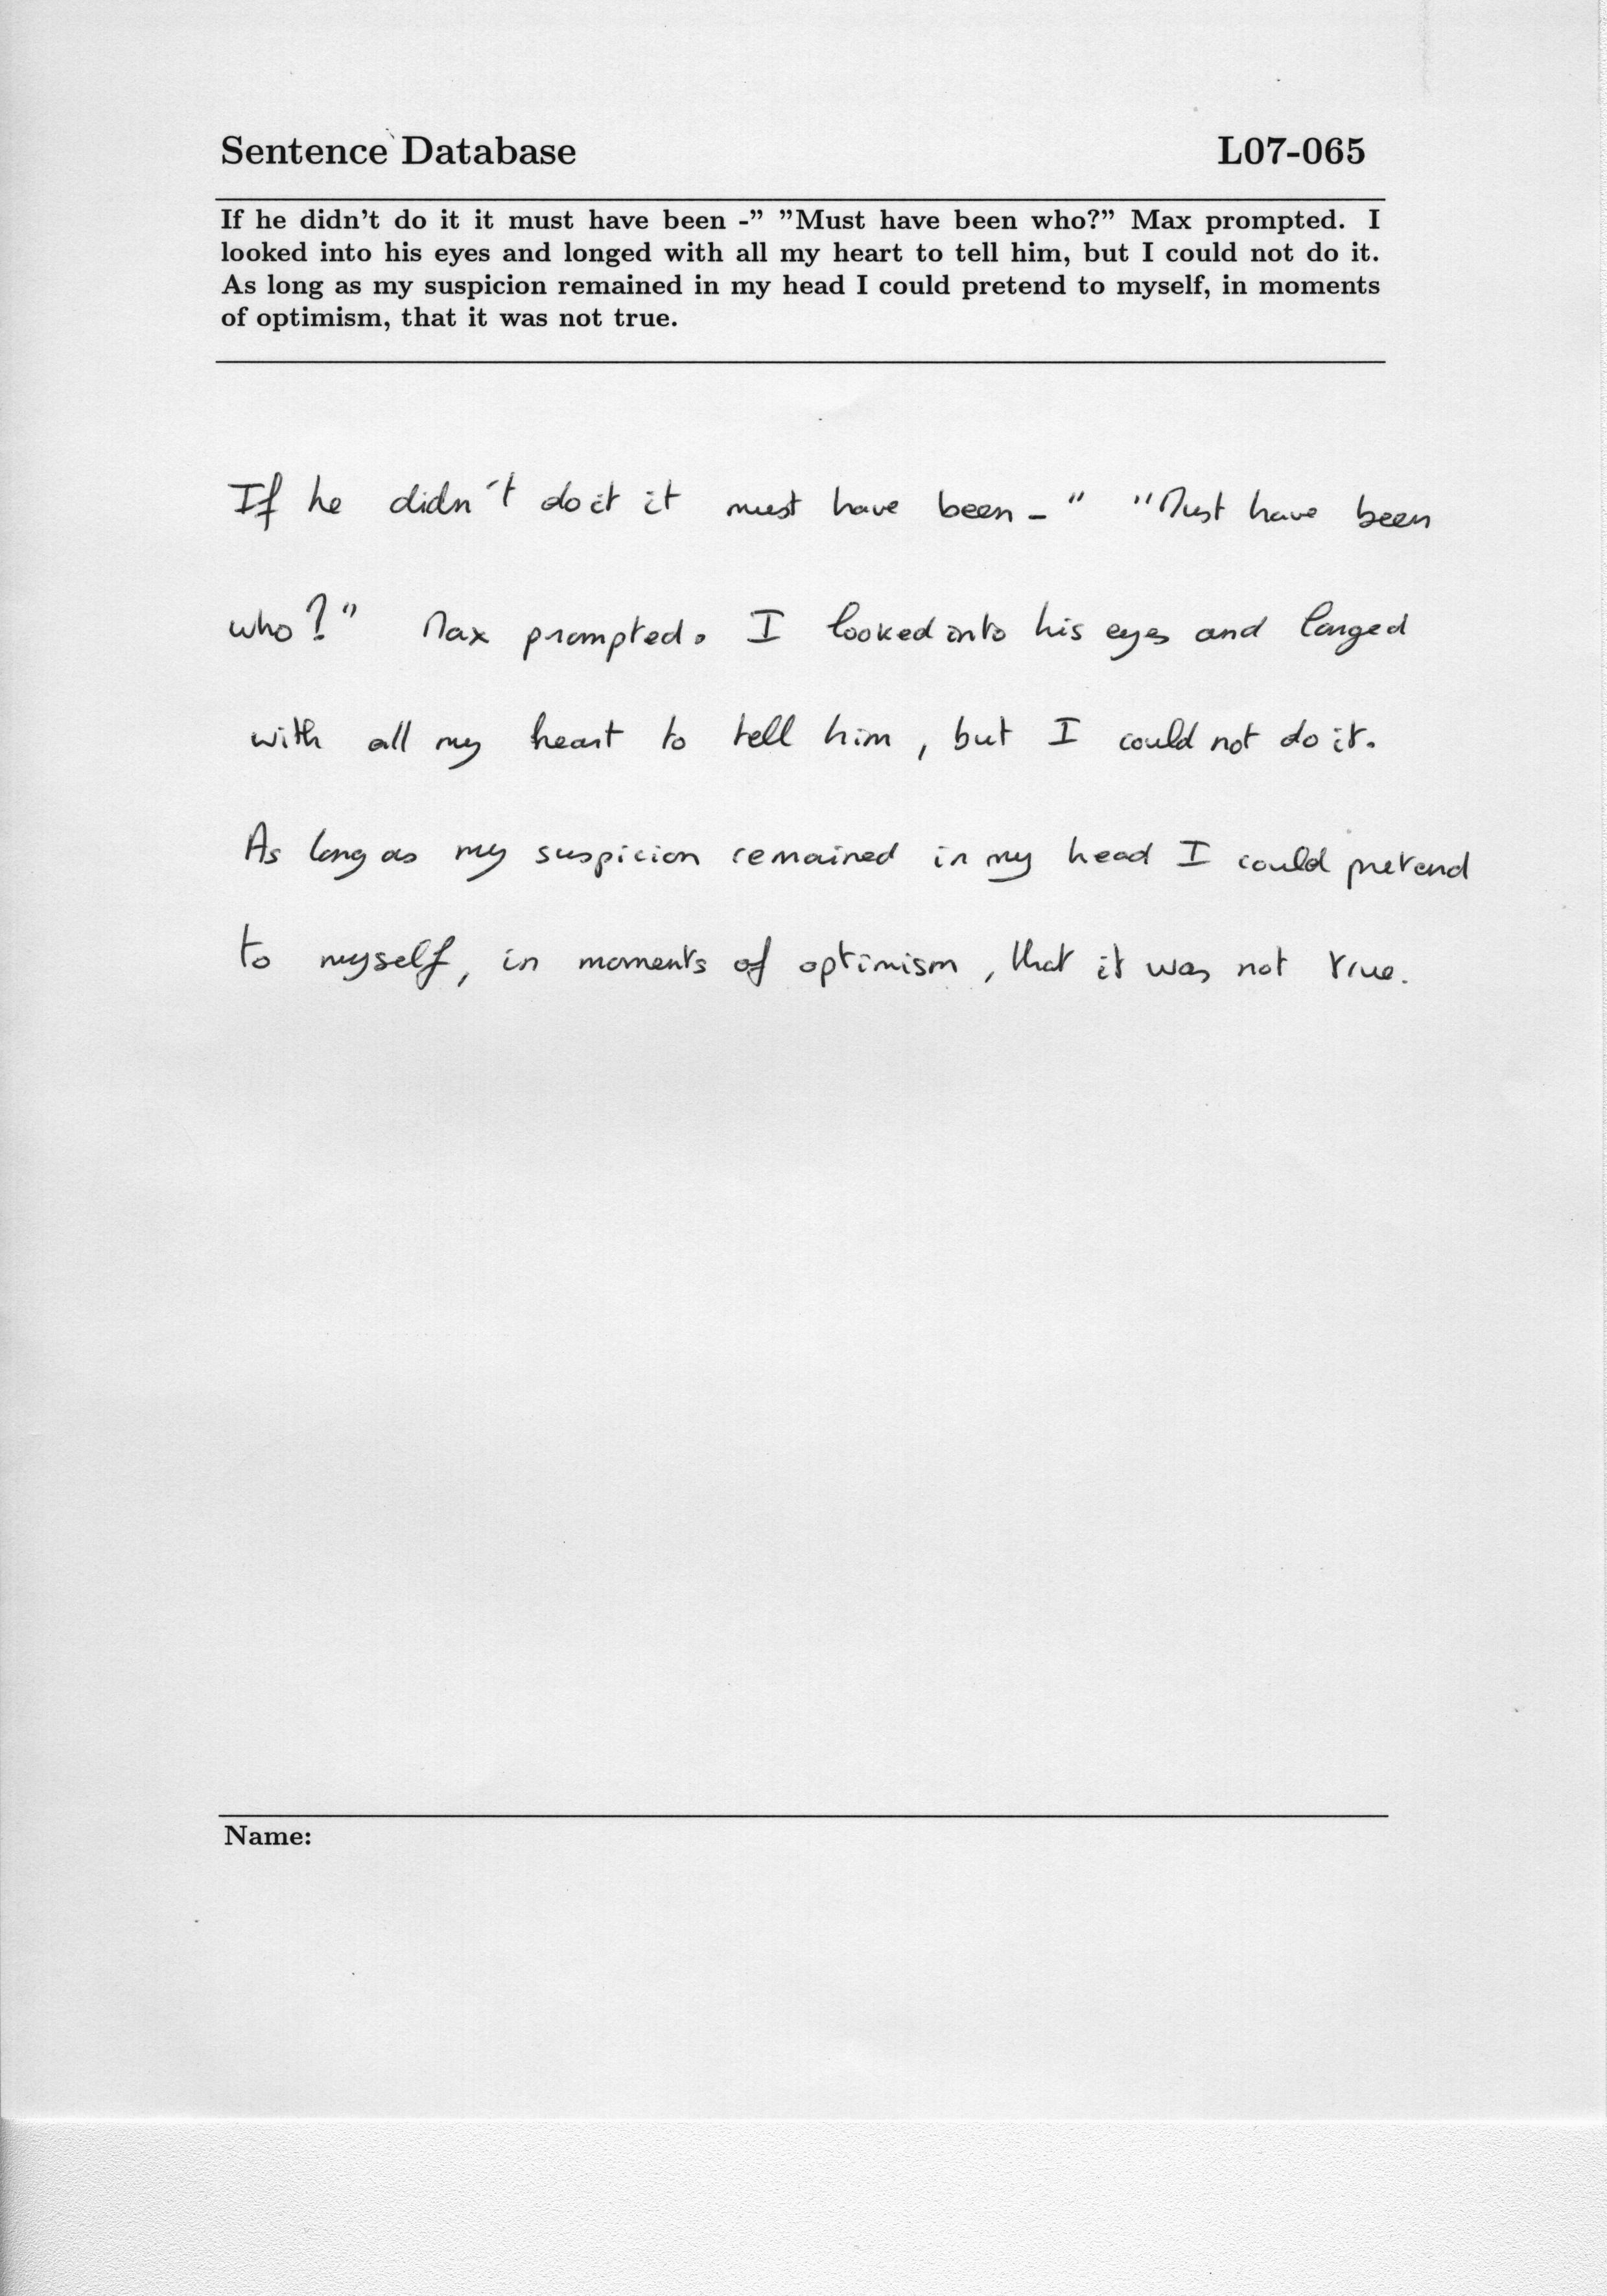 Sentence Database L07-065
If he didn't do it it must have been -" "Must have been who?" Max prompted. I
looked into his eyes and longed with all my heart to tell him, but I could not do it.
As long as my suspicion remained in my head I could pretend to myself, in moments
of optimism, that it was not true.
If he didn't do it it must have been -" "Must have been
who?" Max prompted. I looked into his eyes and longed
with all my heart to tell him, but I could not do it.
As long as my suspicion remained in my head I could pretend
to myself, in moments of optimism, that it was not true.
Name: